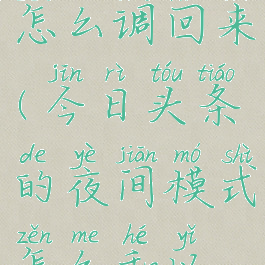 怎么调回来
jīn rì tóu tiáo
(今日头条
de yè jiān mó shì
的夜间模式
zěn me hé yǐ